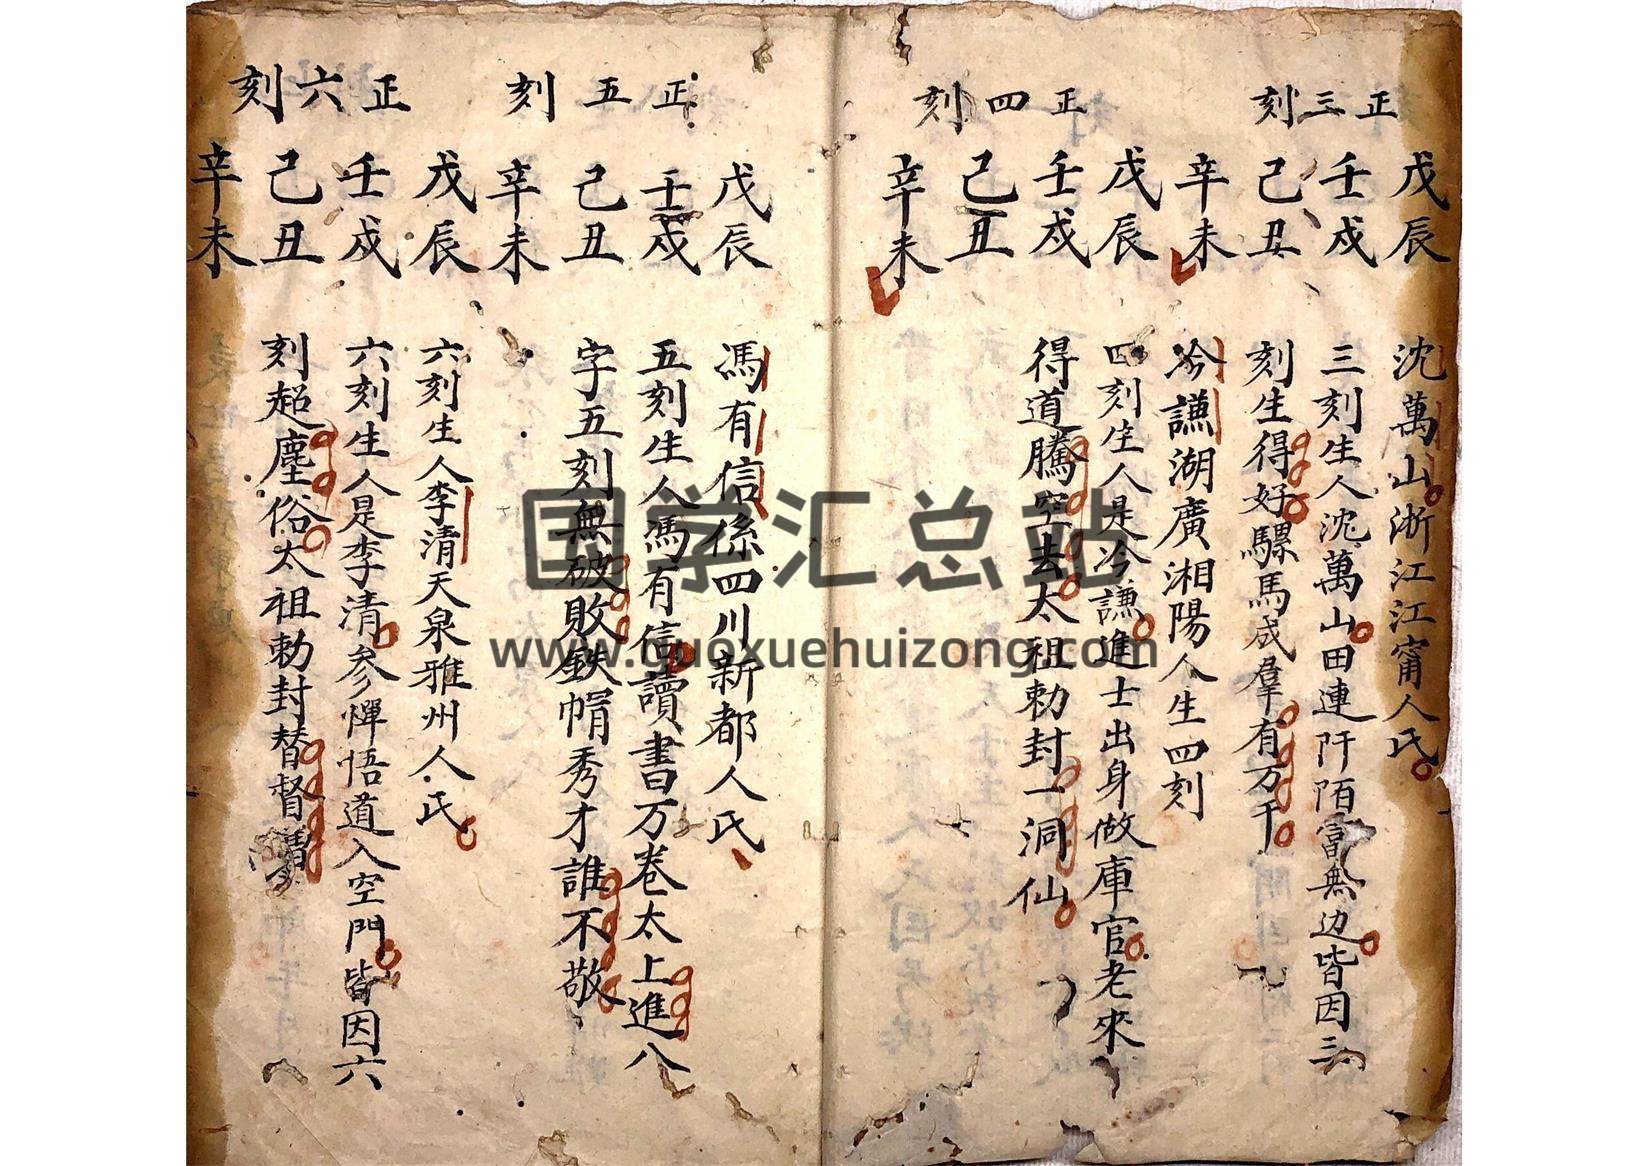 正三刻
戊辰
壬戌
己丑
辛未
沈萬山浙江江甯人氏
三刻生人沈萬山田連阡陌富無边皆因三
刻生得好騾馬成羣有万千
正四刻
戊辰
壬戌
己丑
辛未
冷謙湖廣湘陽人生四刻
四刻生人是冷謙進士出身做庫官老來
得道騰空去太祖勅封一洞仙
正五刻
戊辰
壬戌
己丑
辛未
馮有信係四川新都人氏
五刻生人馮有信讀書万卷太上進八
字五刻無破敗鉄帽秀才誰不敬
正六刻
戊辰
壬戌
己丑
辛未
六刻生人李清天泉雅州人氏
六刻生人是李清参憚悟道入空門皆因六
刻超塵俗太祖勅封替督
国学汇总站
www.guoxuehuizong.com